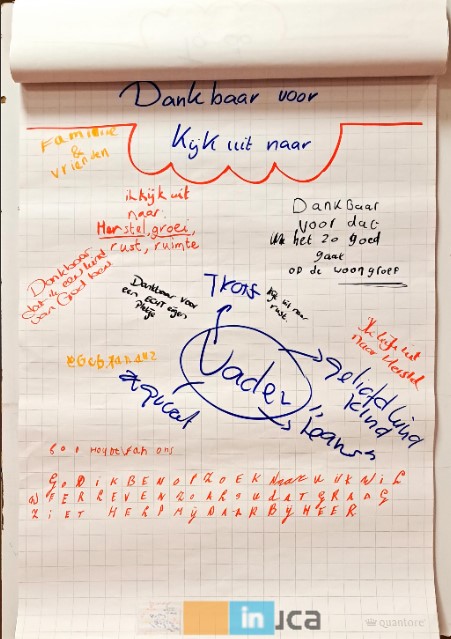 Dankbaar voor
Kijk uit naar
Familie
&
vrienden
ik kijk uit
naar:
Herstel, groei,
rust, ruimte
Dankbaar
voor dat
het zo goed
gaat
op de woongroep
Dankbaar
dat ik een kind
van God ben
Dankbaar voor
een echt eigen
plekje
Trots
kijk uit naar
rust.
Ik kijk uit
naar Herstel
Vader
geliefd
kind
God Houdt van ons
GOD IK BEN OP ZOEK NAAR UW WIL
WEER LEVEN ZOALS U DAT GRAAG
ZIET HELP MIJ DAAR BIJ HEER
in
uca
quantore